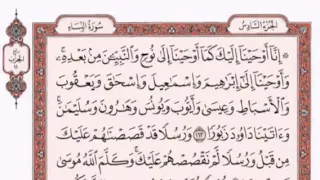 الجزء السادس
سورة النساء
۞ إِنَّا أَوْحَيْنَا إِلَيْكَ كَمَا أَوْحَيْنَا إِلَىٰ نُوحٍ وَالنَّبِيِّينَ مِنْ بَعْدِهِ ۚ
وَأَوْحَيْنَا إِلَىٰ إِبْرَاهِيمَ وَإِسْمَاعِيلَ وَإِسْحَاقَ وَيَعْقُوبَ
وَالْأَسْبَاطِ وَعِيسَىٰ وَأَيُّوبَ وَيُونُسَ وَهَارُونَ وَسُلَيْمَانَ ۚ
وَآتَيْنَا دَاوُودَ زَبُورًا ﴿١٦٣﴾ وَرُسُلًا قَدْ قَصَصْنَاهُمْ عَلَيْكَ
مِنْ قَبْلُ وَرُسُلًا لَمْ نَقْصُصْهُمْ عَلَيْكَ ۚ وَكَلَّمَ اللَّهُ مُوسَىٰ